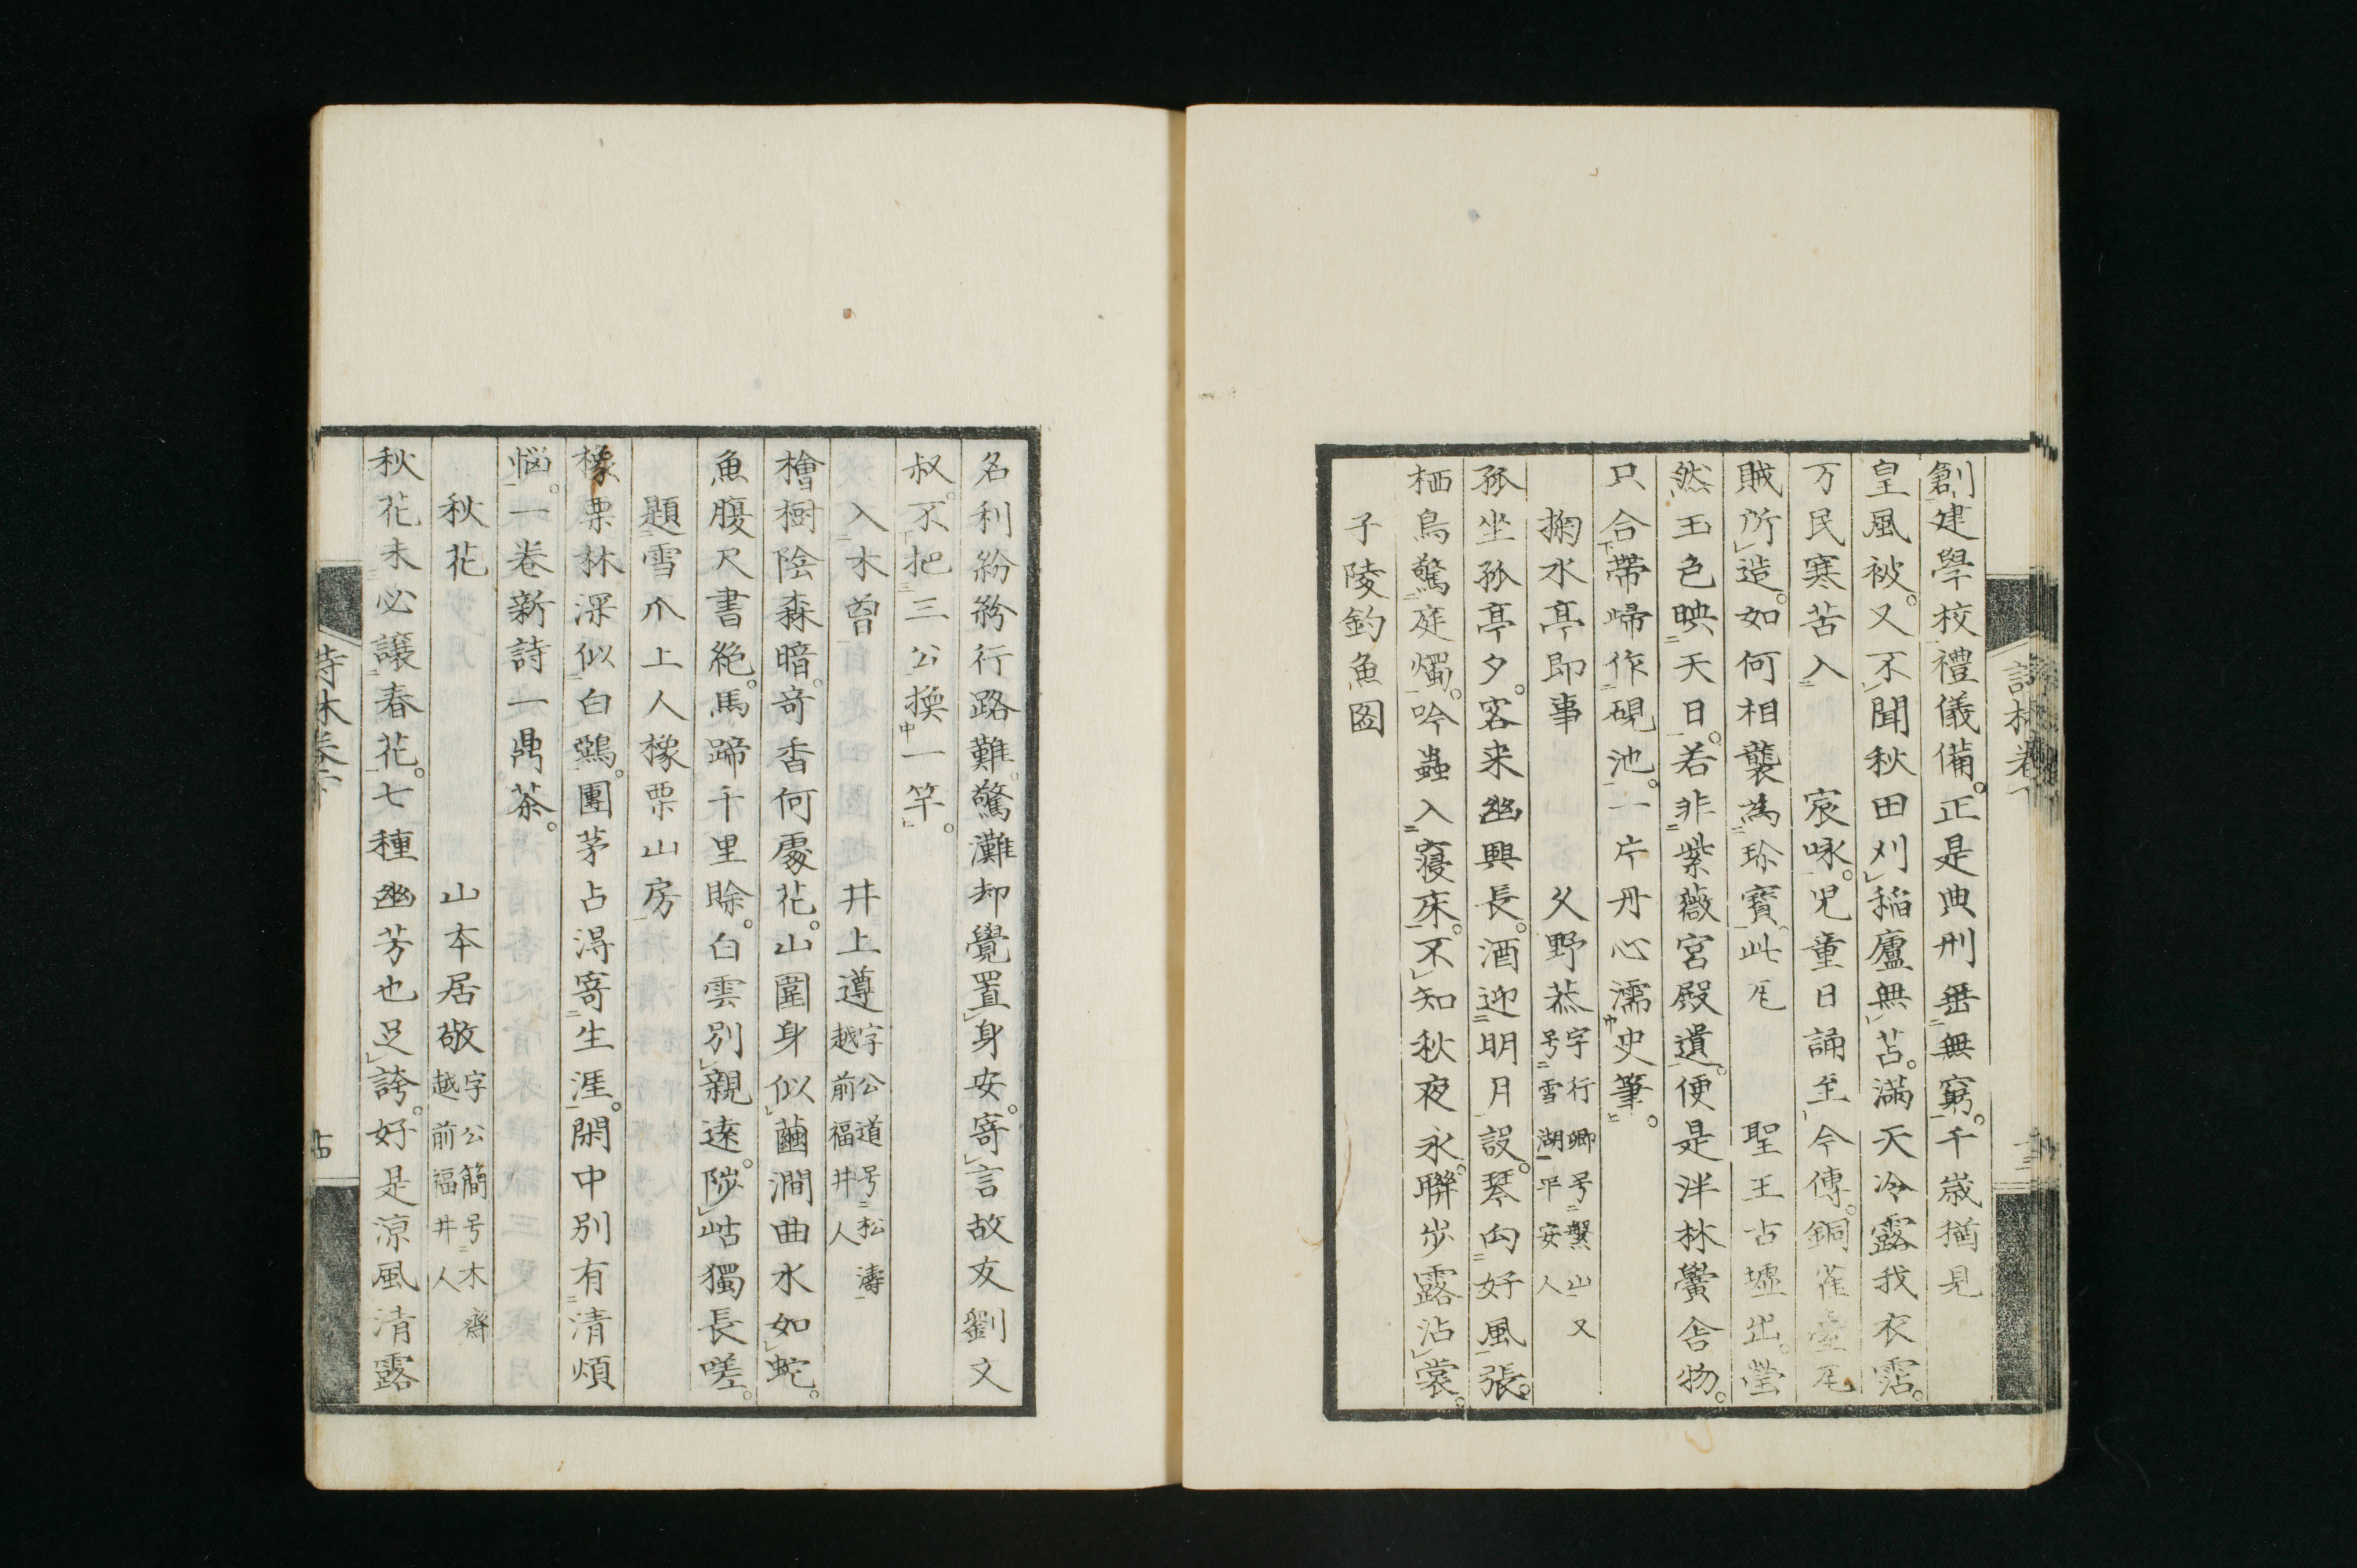 創建學校禮儀備。正是典刑垂無窮。千歳猶見
皇風被。又不聞秋田刈稲廬無苫。滿天冷露我衣霑。
万民寒苦入 宸咏。児童日誦至今傳。銅雀臺瓦
賊所造。如何相襲為珍寶。此瓦 聖王古墟出。瑩
然玉色映天日。若非紫薇宮殿遺。便是泮林黌舎物。
只合帶歸作硯池。一片丹心濡史筆。
掬水亭即事 父野恭 字行卿号盤山又号雪湖平安人
孤坐孤亭夕。客来幽興長。酒迎明月設。琴向好風張。
栖鳥驚庭燭。吟蟲入寝床。不知秋夜永。聯歩露沾裳。
子陵釣魚図
名利紛紛行路難。驚灘却覺置身安。寄言故友劉文
叔。不把三公換一竿。
入木曽 井上遵 字公道号松濤越前福井人
檜樹陰森暗。奇香何處花。山圍身似繭。澗曲水如蛇。
魚腹尺書絶。馬蹄千里賒。白雲別親遠。陟岵獨長嗟。
題雪爪上人橡栗山房
橡栗林深似白鶏。團茅占得寄生涯。閑中別有清煩
惱。一卷新詩一鼎茶。
秋花 山本居敬 字公簡号木齋越前福井人
秋花未必讓春花。七種幽芳也足誇。好是涼風清露
詩林卷下